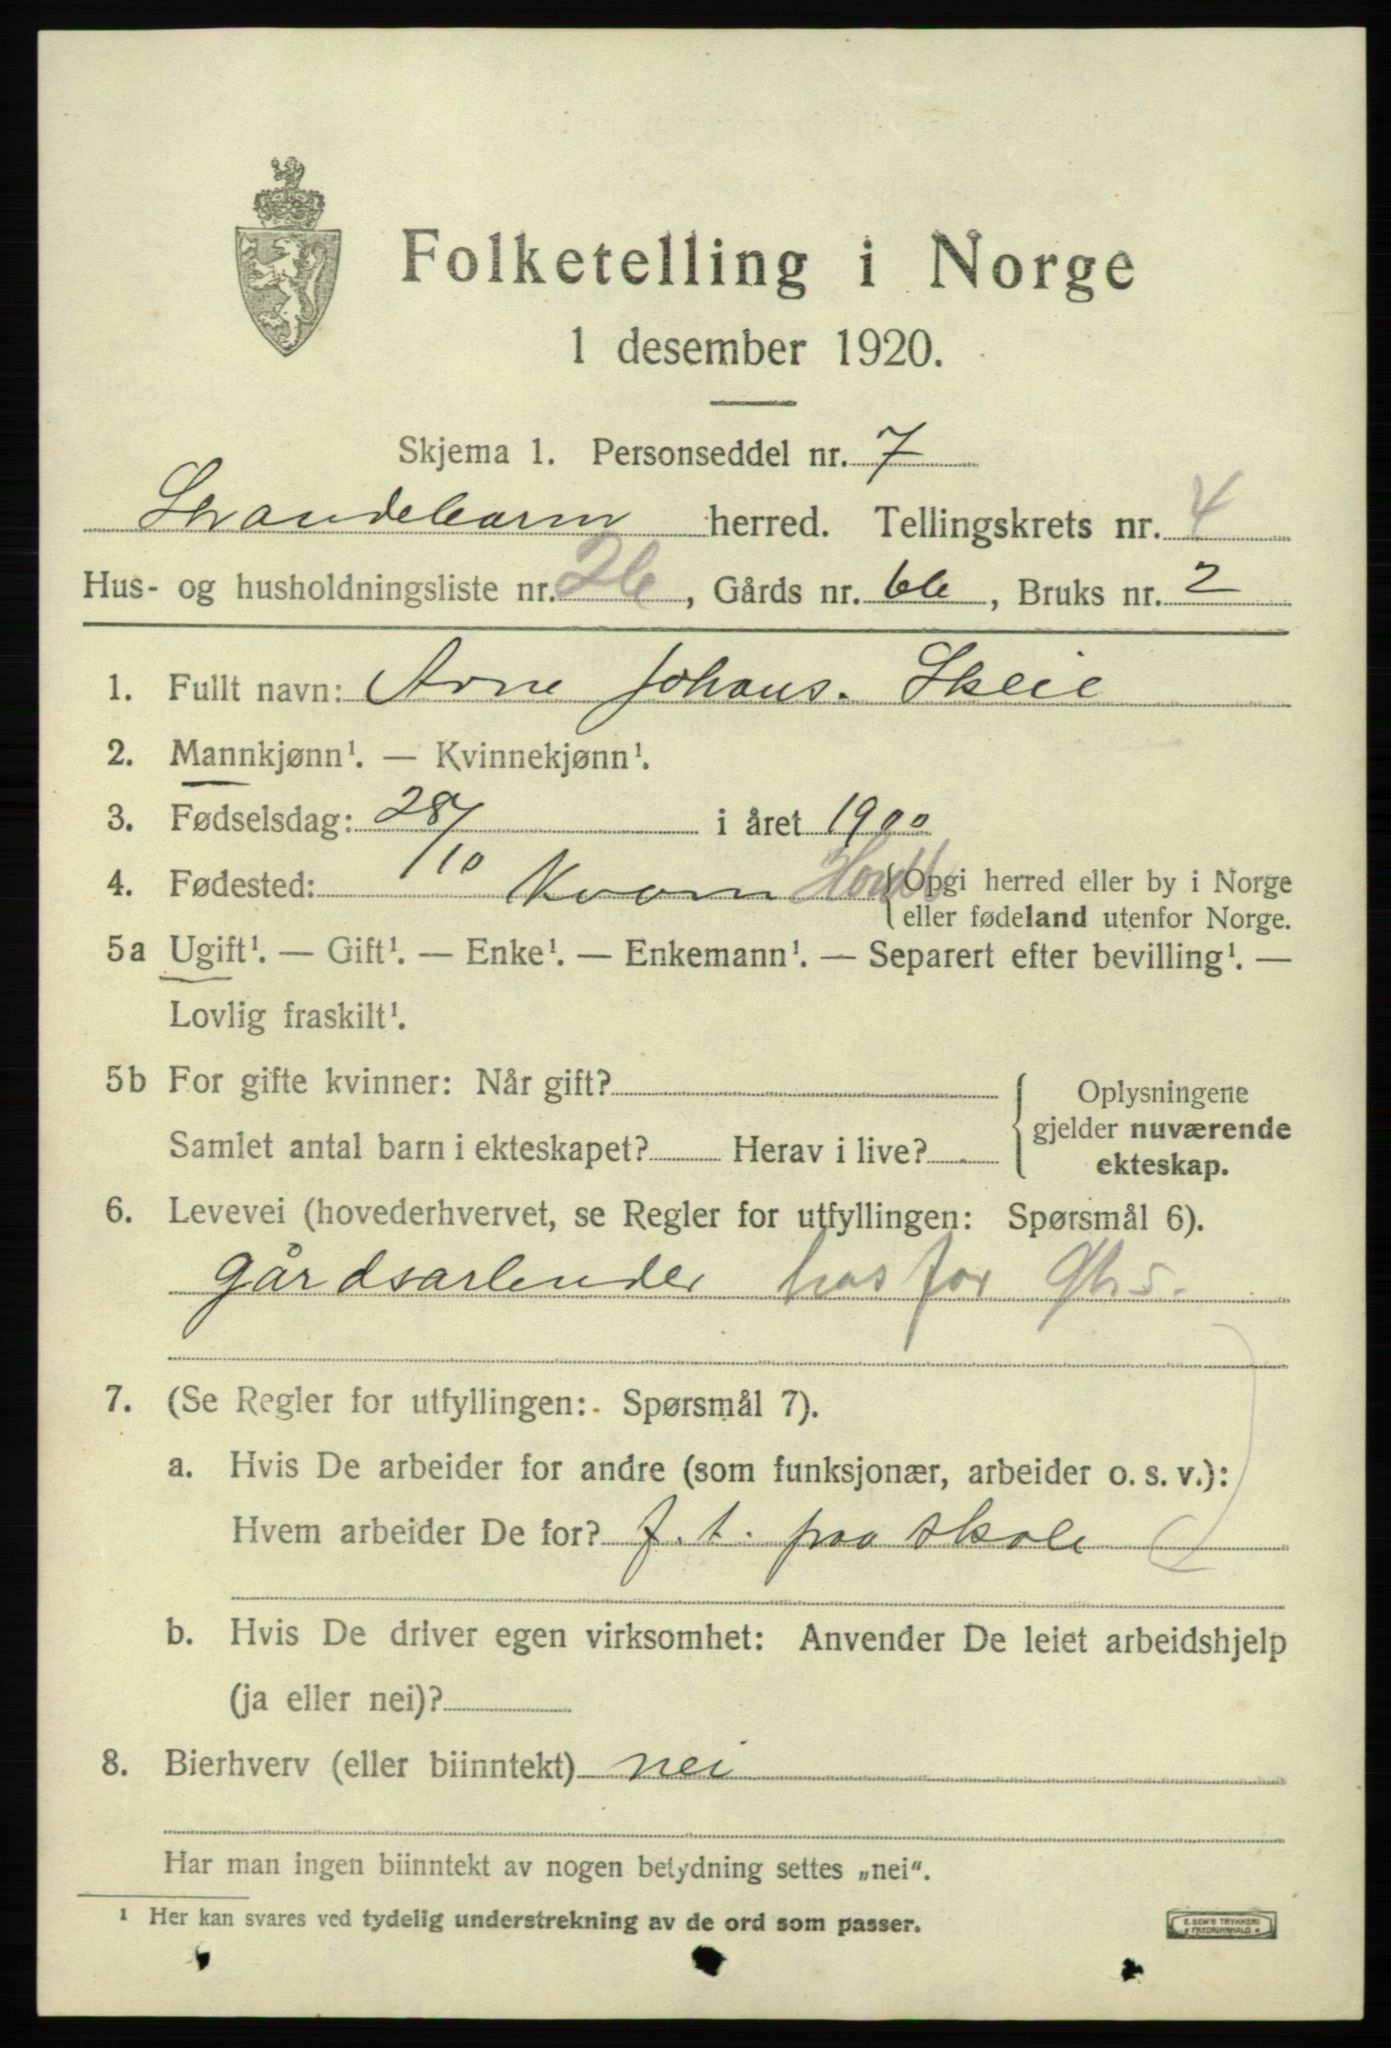 Folketelling i Norge
1 desember 1920.
Skjema 1. Personseddel nr. 7
Strandebarm herred. Tellingskrets nr. 4
Hus- og husholdningsliste nr. 26, Gårds nr. 66, Bruks nr. 2
1. Fullt navn: Arne Johans. Skeie
2. Mannkjønn¹. — Kvinnekjønn¹.
3. Fødselsdag: 28/10 i året 1900
4. Fødested: Kvam Hord. {Opgi herred eller by i Norge
eller fødeland utenfor Norge.
5a Ugift¹. — Gift¹. — Enke¹. — Enkemann¹. — Separert efter bevilling¹. —
Lovlig fraskilt¹.
5b For gifte kvinner: Når gift?
Samlet antal barn i ekteskapet? Herav i live?
Oplysningene
gjelder nuværende
ekteskap.
6. Levevei (hovederhvervet, se Regler for utfyllingen: Spørsmål 6).
gårdsarbeider hos far
7. (Se Regler for utfyllingen: Spørsmål 7).
a. Hvis De arbeider for andre (som funksjonær, arbeider o. s. v.):
Hvem arbeider De for? f. t. paa skole
b. Hvis De driver egen virksomhet: Anvender De leiet arbeidshjelp
(ja eller nei)?
8. Bierhverv (eller biinntekt) nei
Har man ingen biinntekt av nogen betydning settes „nei“.
¹ Her kan svares ved tydelig understrekning av de ord som passer.
E. SEM'S TRYKKERI
FREDRIKSHALD